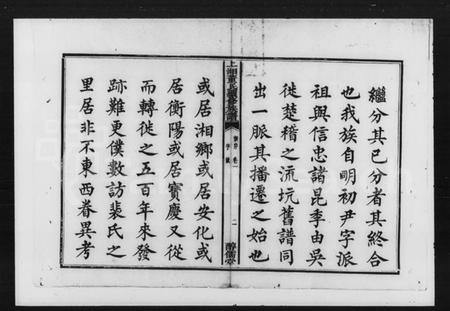 繼分其已分者其終合
也我族自明初尹字派
祖興信忠諸昆季由吳
徙楚稽之流坑舊譜同
出一脈其播遷之始也
上湘董氏續修族譜
卷一
二
醇儒堂
或居湘鄉或居安化或
居衡陽或居寶慶又從
而轉徙之五百年來發
跡難更僕數訪裴氏之
里居非不東西眷異考